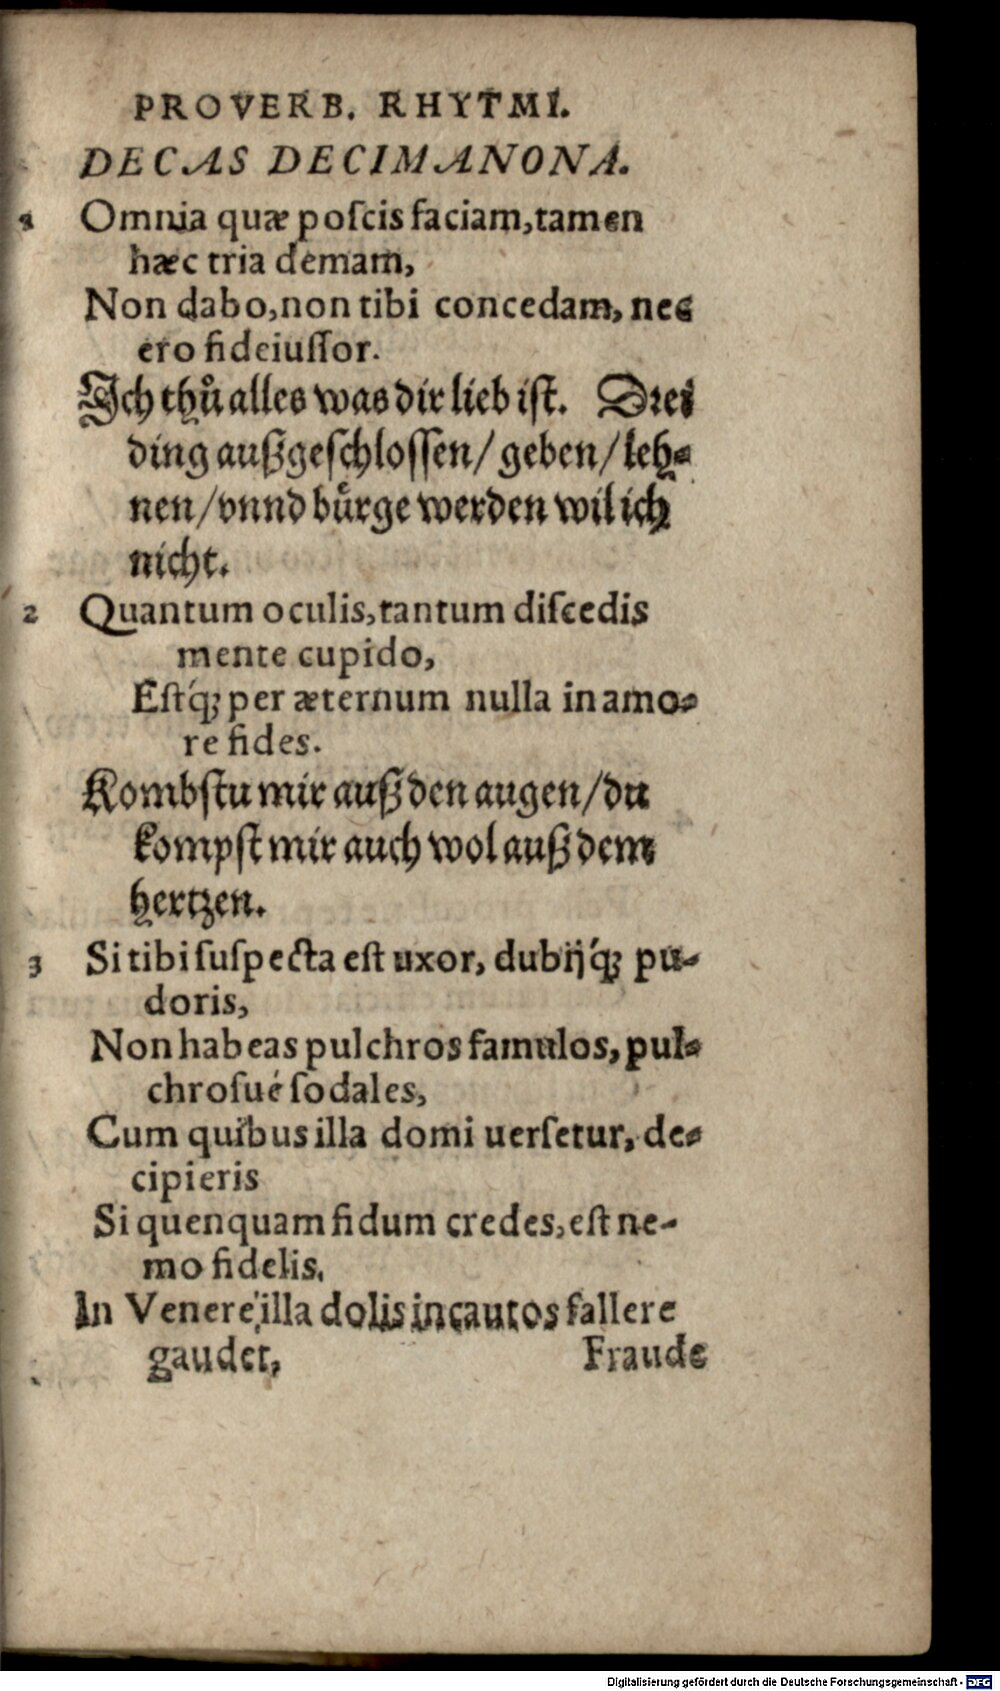 PROVERB. RHYTMI.
DECAS DECIMANONA.
1 Omnia quæ poſcis faciam, tamen
hæc tria demam,
Non dabo, non tibi concedam, nec
ero fideiuſſor.
Ich thů alles was dir lieb iſt. Drei
ding außgeſchloſſen/ geben/ leh-
nen/ vnnd bürge werden wil ich
nicht.
2 Quantum oculis, tantum diſcedis
mente cupido,
Eſtq́; per æternum nulla in amo-
re fides.
Kombſtu mir auß den augen/ du
kompſt mir auch wol auß dem
hertzen.
3 Si tibi ſuſpecta eſt uxor, dubijq́; pu-
doris,
Non habeas pulchros famulos, pul-
chroſué ſodales,
Cum quibus illa domi uerſetur, de-
cipieris
Si quenquam fidum credes, eſt ne-
mo fidelis,
In Venere illa dolis incautos fallere
gaudet,
Fraude
Digitalisierung gefördert durch die Deutsche Forschungsgemeinschaft - DFG